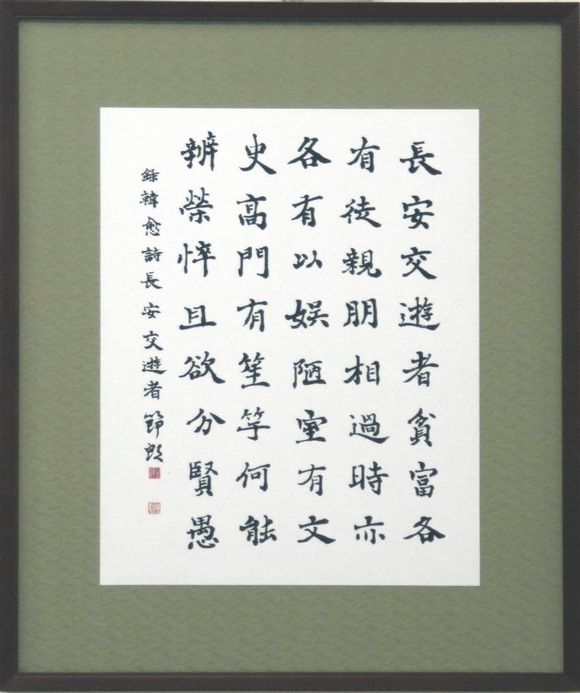 長安交遊者貧富各
有徒親朋相過時亦
各有以娯陋室有文
史高門有笙竽何能
辨榮悴且欲分賢愚
録韓愈詩長安交遊者 節